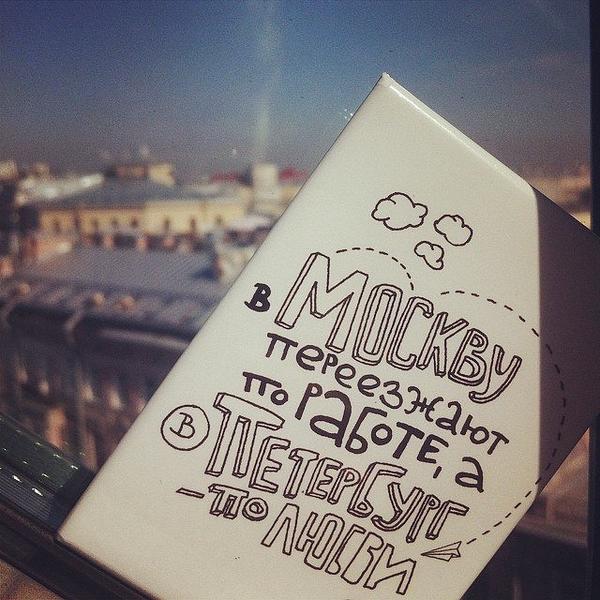 в МОСКВУ
переезжают
по РАБОТЕ, а
в ПЕТЕРБУРГ
– по ЛЮБВИ